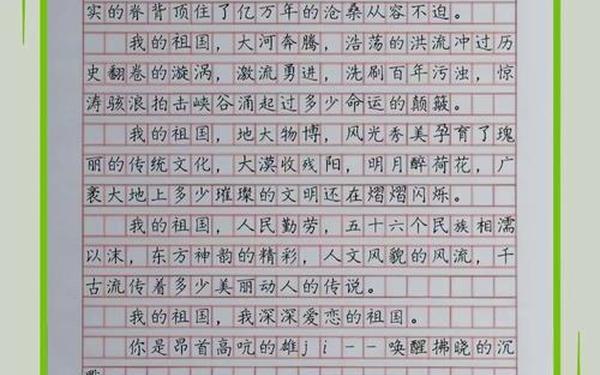 实的脊背顶住了亿万年的沧桑从容不迫。
我的祖国，大河奔腾，浩荡的洪流冲过历
史翻卷的漩涡，激流勇进，洗刷百年污浊，惊
涛骇浪拍击峡谷涌起过多少命运的颠簸。
我的祖国，地大物博，风光秀美孕育了瑰
丽的传统文化，大漠收残阳，明月醉荷花，广
袤大地上多少璀璨的文明还在熠熠闪烁。
我的祖国，人民勤劳，五十六个民族相濡
以沫，东方神韵的精彩，人文风貌的风流，千
古流传着多少美丽动人的传说。
我的祖国，我深深爱恋的祖国。
你是昂首高吭的雄ji--唤醒拂晓的沉